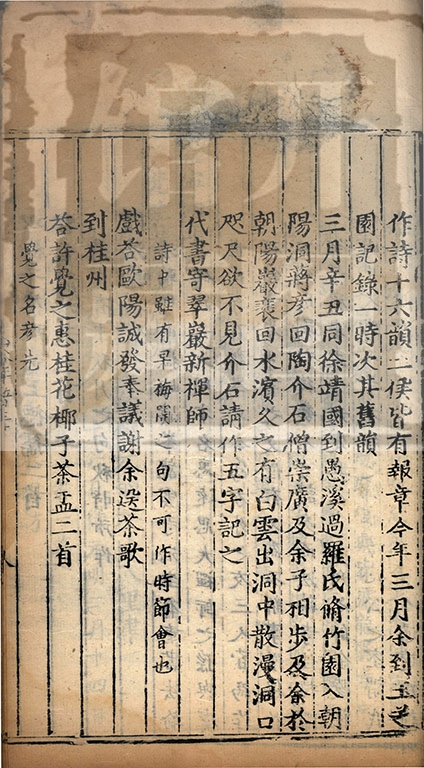 作詩十六韻二侯皆有報章今年三月余到玉芝
園記錄一時次其舊韻
三月辛丑同徐靖國到愚溪過羅氏脩竹園入朝
陽洞蔣彦回陶介石僧崇廣及余子相步及余於
朝陽巖裵回水濱久之有白雲出洞中散漫洞口
咫尺欲不見介石請作五字記之
代書寄翠巖新禪師
詩中雖有早梅開之句不可作時節會也
戲荅歐陽誠發奉議謝余送茶歌
到桂州
荅許覺之惠桂花椰子茶盂二首
覺之名彦先